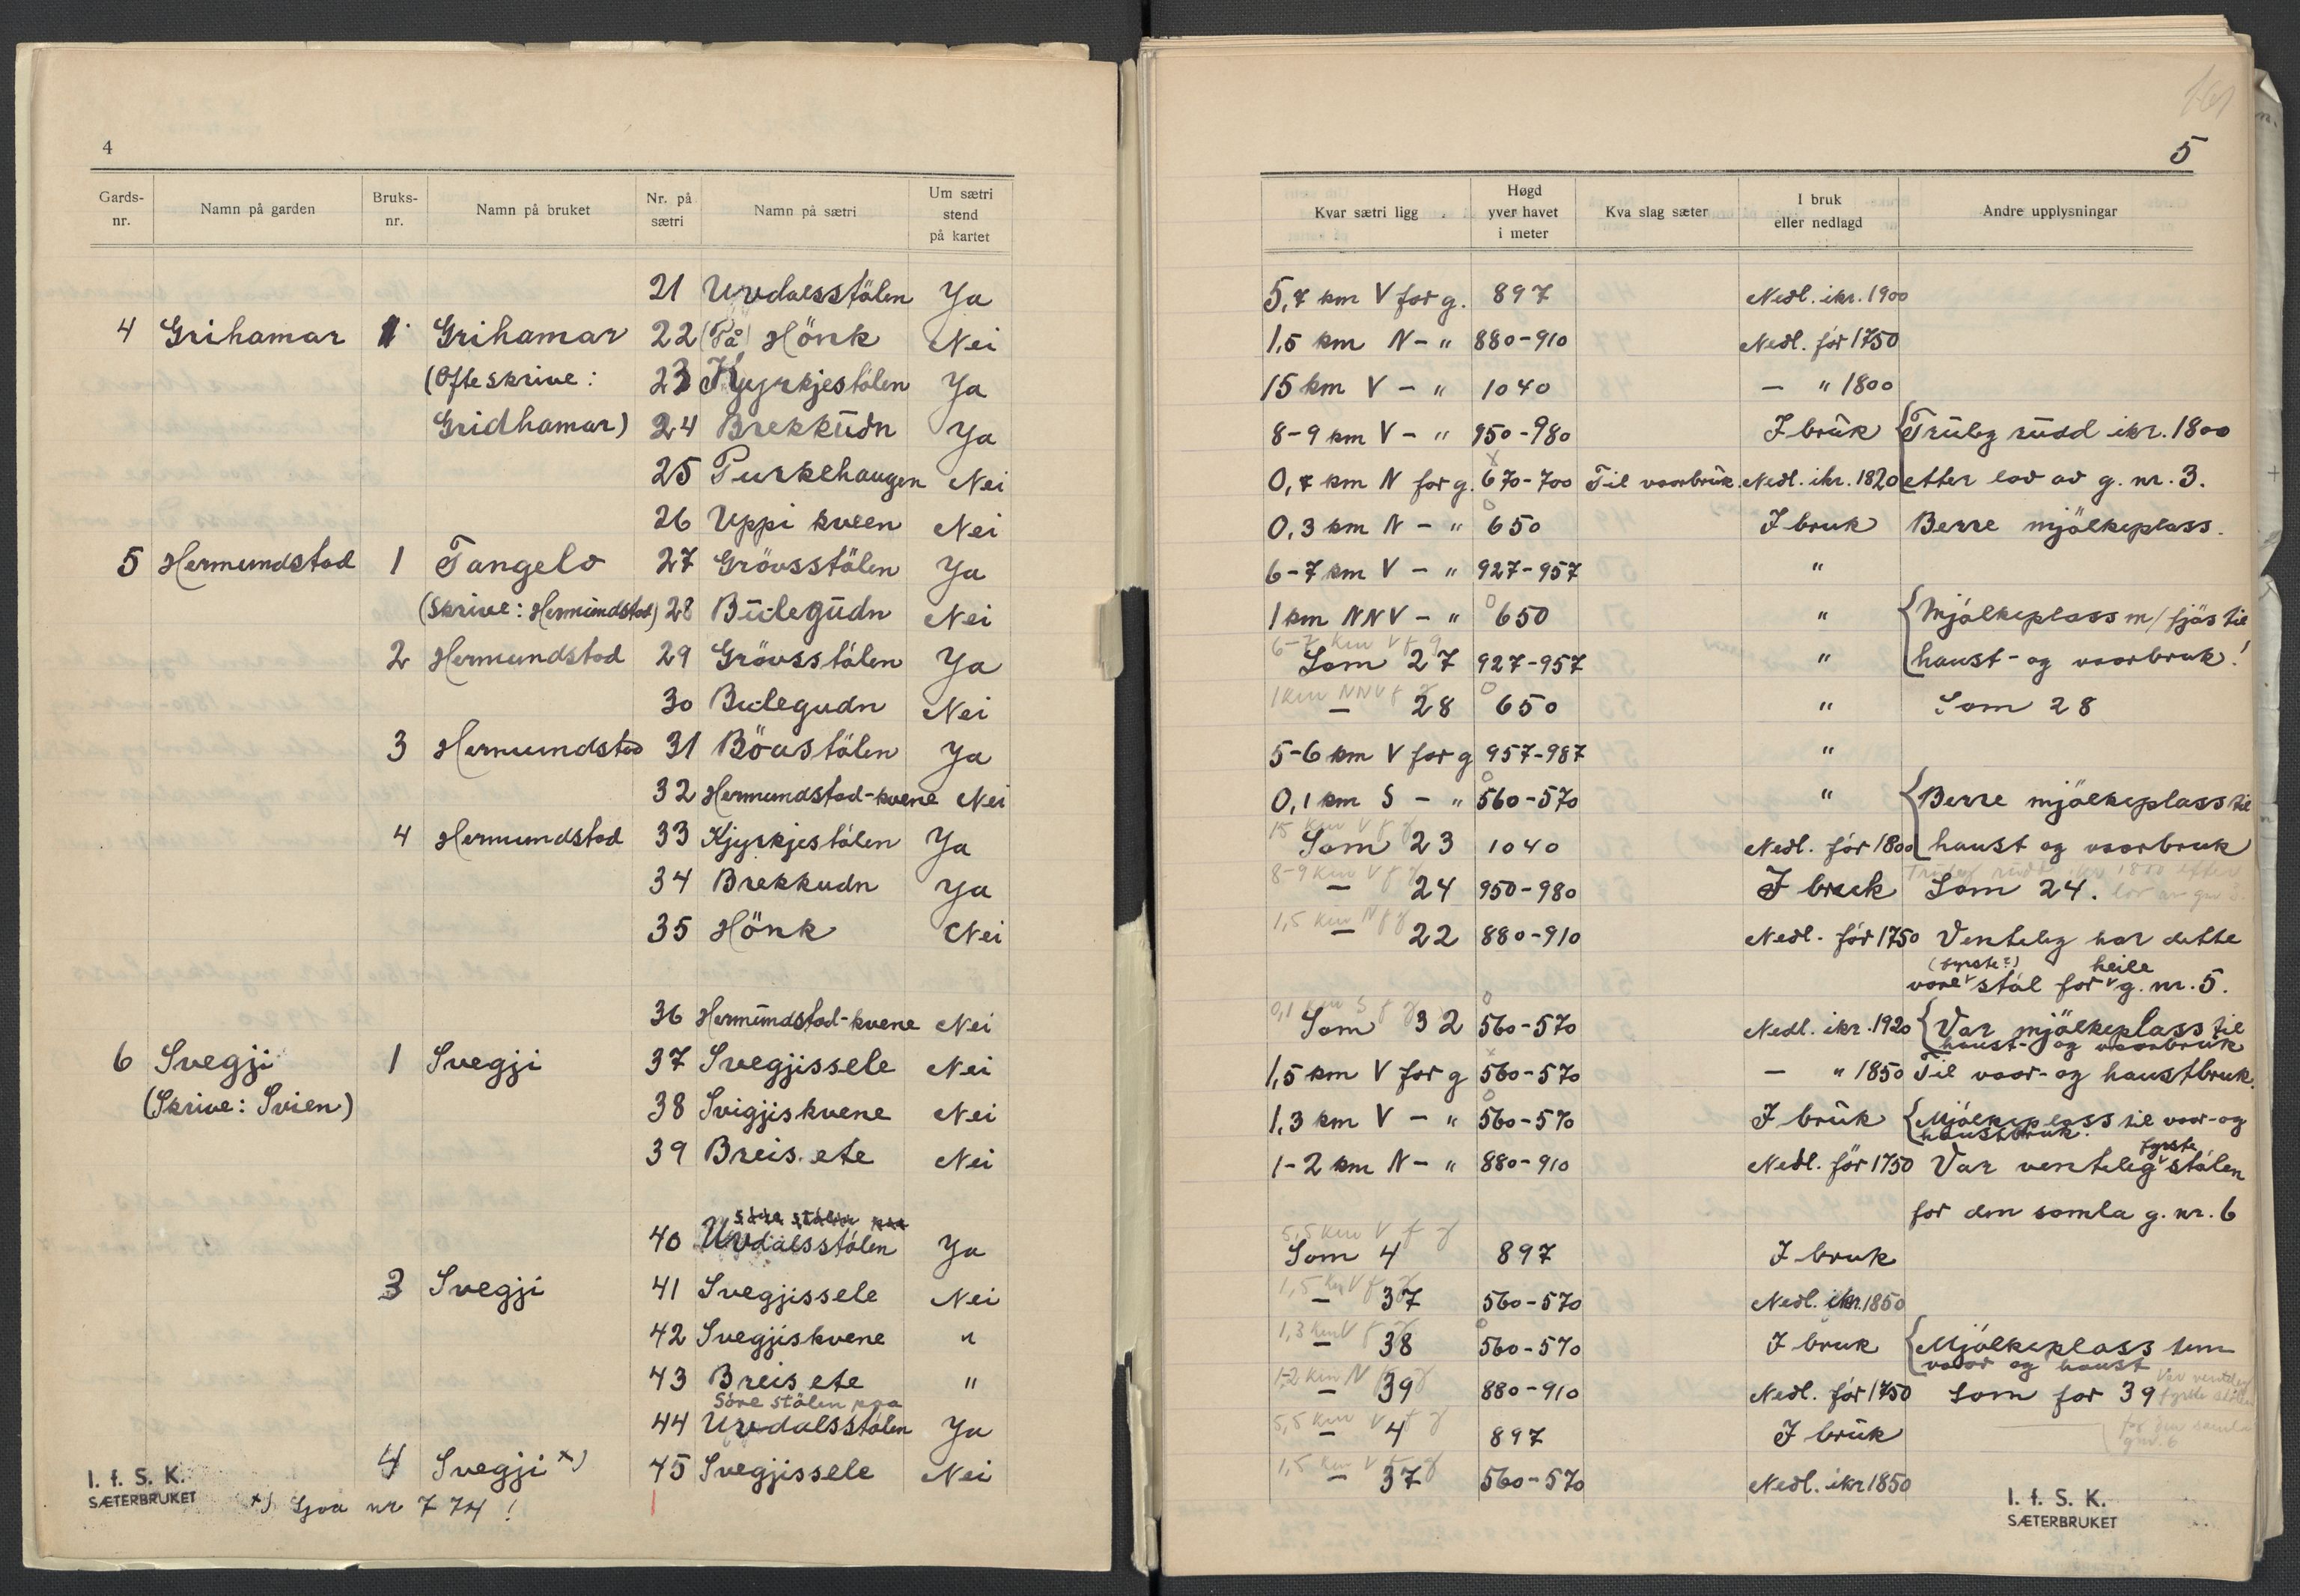 4
Gards-nr. Namn på garden Bruks-nr. Namn på bruket Nr. på sætri Namn på sætri Um sætri stend på kartet
21 Uvdalsstölen Ja
4 Grihamar 1 Grihamar 22 (På) Hönk Nei
(Ofte skrive: 23 Kjyrkjestölen Ja
Gridhamar) 24 Brekkudn Ja
25 Purkehaugen Nei
26 Uppi kveen Nei
5 Hermundstad 1 Tangelv 27 Grövsstölen Ja
(Skrive: Hermundstad) 28 Bulegudn Nei
2 Hermundstad 29 Grövsstölen Ja
30 Bulegudn Nei
3 Hermundstad 31 Böustölen Ja
32 Hermundstad-kvene Nei
4 Hermundstad 33 Kjyrkjestölen Ja
34 Brekkudn Ja
35 Hönk Nei
36 Hermundstad-kvene Nei
6 Svegji 1 Svegji 37 Svegjissele Nei
(Skrive: Svien) 38 Svigjiskvene Nei
39 Breis.ete Nei
40 Uvdalsstölen Ja
3 Svegji 41 Svegjissele Nei
42 Svegjiskvene "
43 Breis ete "
Söre stölen paa
44 Uvdalsstölen Ja
4 Svegji x) 45 Svegjissele Nei
I. f. S. K.
SÆTERBRUKET
x) Sjaa nr 774!
161
5
Kvar sætri ligg Høgd yver havet i meter Kva slag sæter I bruk eller nedlagd Andre upplysningar
5,7 km V for g. 897 Nedl. ikr. 1900
1,5 km N - " 880-910 Nedl. för 1750
15 km V - " 1040 - " 1800
8-9 km V - " 950-980 I bruk Truleg rudd ikr. 1800
0,7 km N for g. x 670-700 Til vaarbruk. Nedl. ikr. 1820 etter lov av g. nr. 3.
0,3 km N - " o 650 I bruk Berre mjölkeplass.
6-7 km V - " 927-957 "
1 km NNV - " o 650 " Mjölkeplass m/fjös til
6-7 km V f g
Som 27 927-957 " haust- og vaarbruk!
1 km NNV f g
- 28 o 650 " Som 28
5-6 km V for g 957-987 "
0,1 km S - " o 560-570 " Berre mjölkeplass til
15 km V f g
Som 23 1040 Nedl. för 1800 haust og vaarbruk
8-9 km V f g
- 24 950-980 I bruk Som 24.
1,5 km N f g
- 22 880-910 Nedl. för 1750 Venteleg har dette
(fyrste?) heile
vore stöl for g. nr. 5.
0,1 km S f g
Som 32 o 560-570 Nedl. ikr. 1920 Var mjölkeplass til
haust- og vaarbruk
1,5 km V for g x 560-570 - " 1850 Til vaar- og haustbruk.
1,3 km V - " o 560-570 I bruk Mjölkeplass til vaar- og
haustbruk.
fyrste
1-2 km N - " 880-910 Nedl. för 1750 Var venteleg stölen
for den samla g. nr. 6
5,5 km V f g
Som 4 897 I bruk
1,5 km V f g
- 37 560-570 Nedl. ikr. 1850
1,3 km V f g
- 38 o 560-570 I bruk Mjölkeplass
vaar og haust
1-2 km N f g
- 39 880-910 Nedl. för 1750 Som for 39
5,5 km V f g
- 4 897 I bruk
for den samla
gnr. 6
1,5 km V f g
- 37 560-570 Nedl. ikr 1850
I. f. S. K.
SÆTERBRUKET